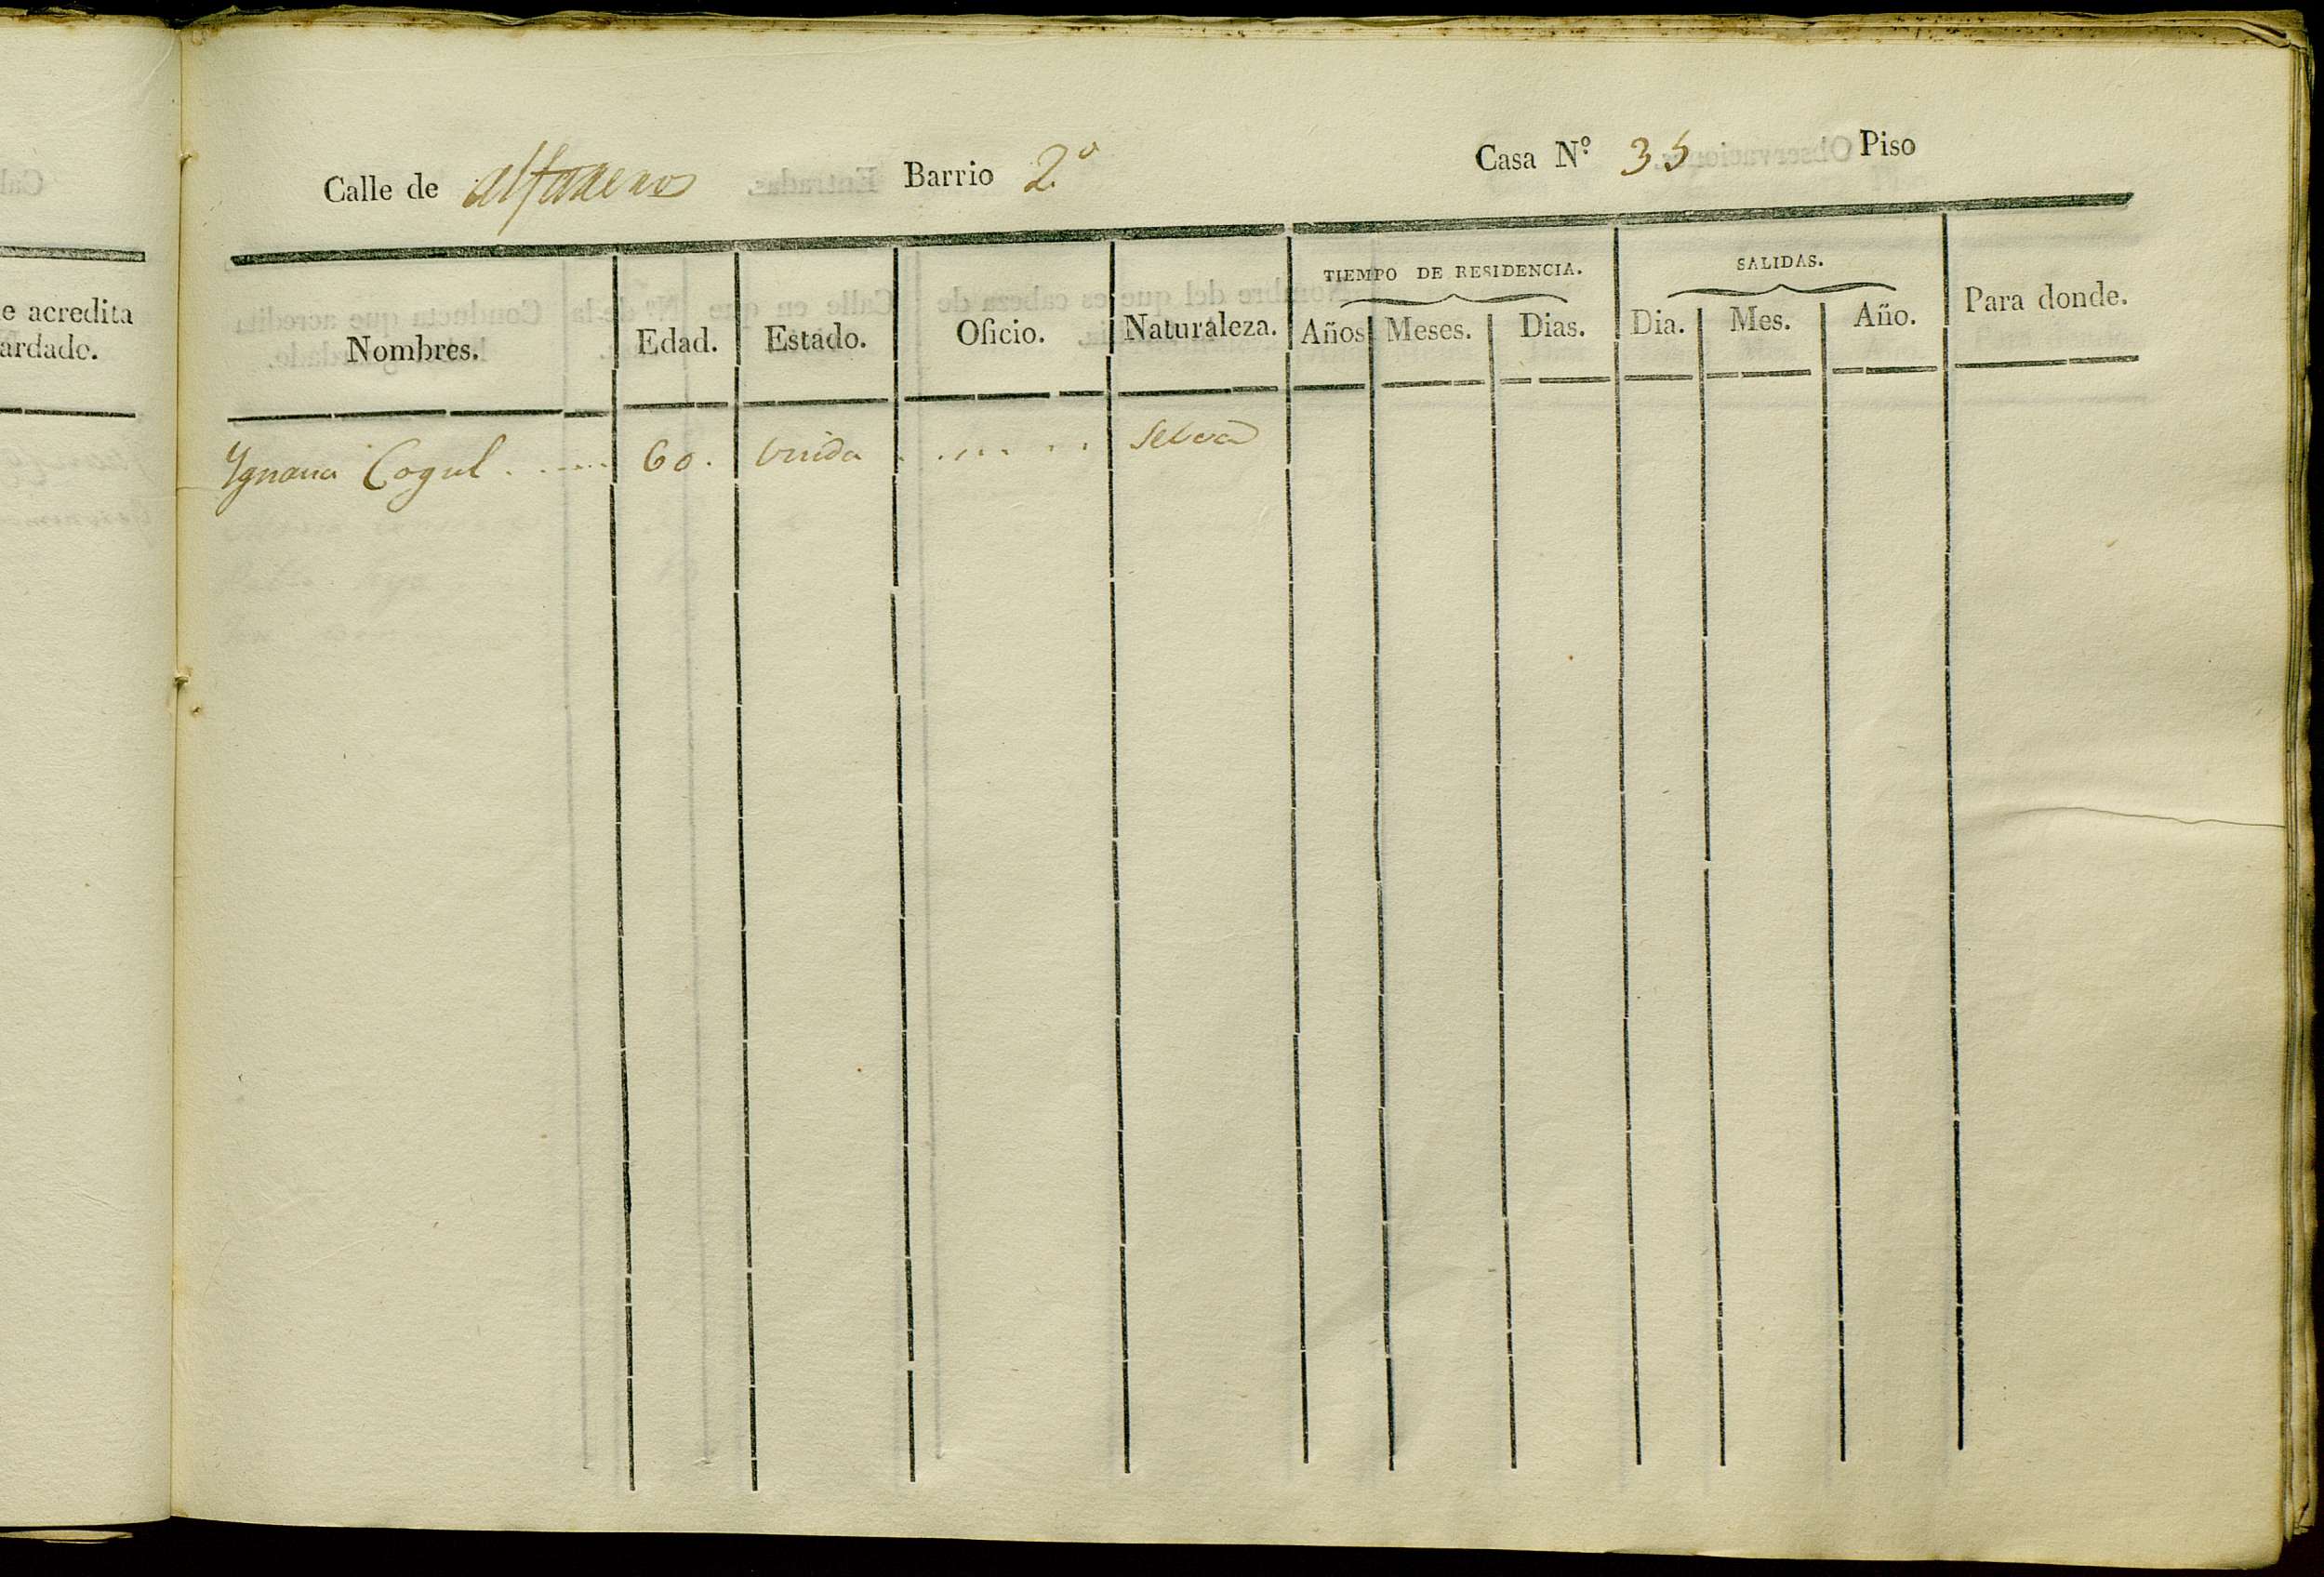 Calle de Alfareros Barrio 2.º Casa N.º 35 Piso
TIEMPO DE RESIDENCIA. SALIDAS.
Nombres. Edad. Estado. Oficio. Naturaleza. Años Meses. Dias. Dia. Mes. Año. Para donde.
Ygnacia Cogul . ..... 60. Viuda . ..... .. Selva
e acredita
ardado.